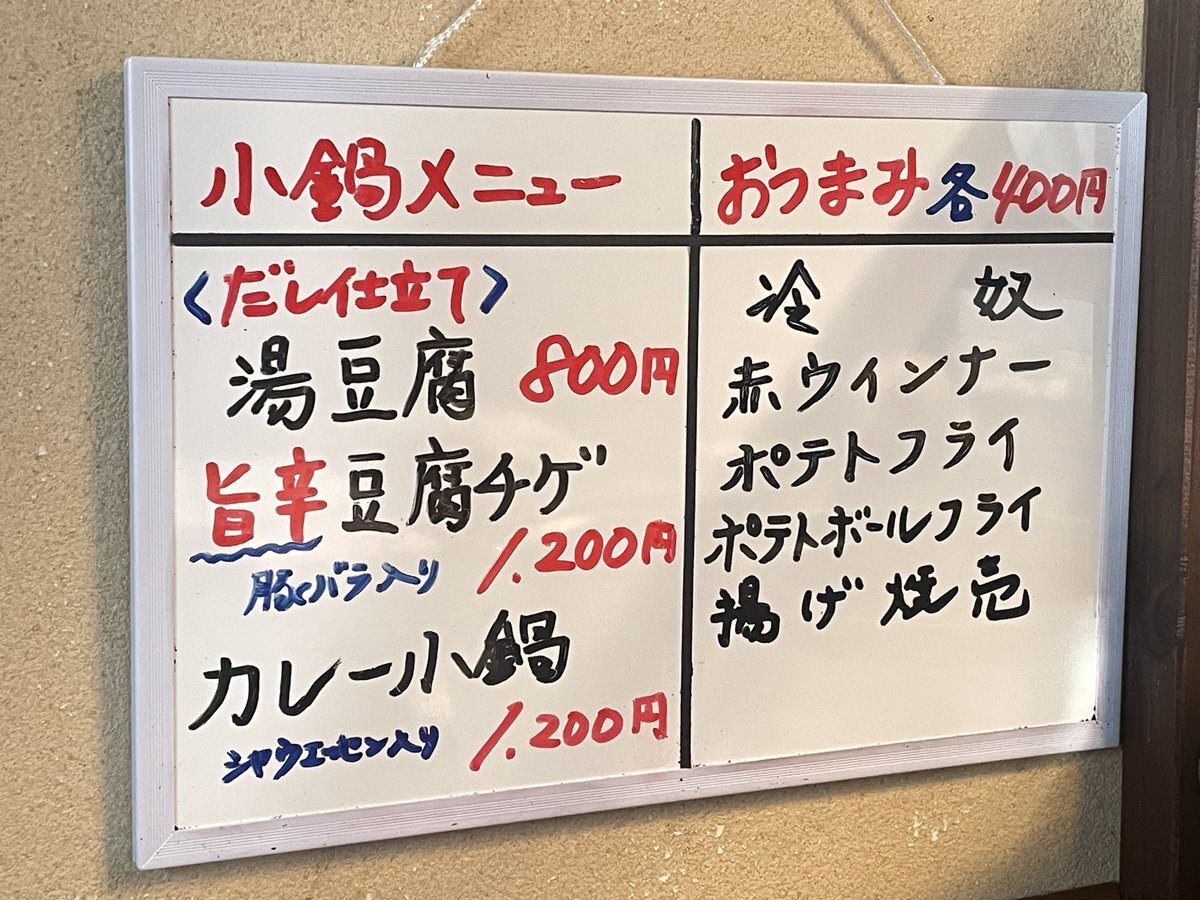 小鍋メニュー
〈だし仕立て〉
湯豆腐 800円
旨辛豆腐チゲ
豚バラ入り 1.200円
カレー小鍋
シャウエッセン入り 1.200円
おつまみ各400円
冷 奴
赤ウインナー
ポテトフライ
ポテトボールフライ
揚げ焼売